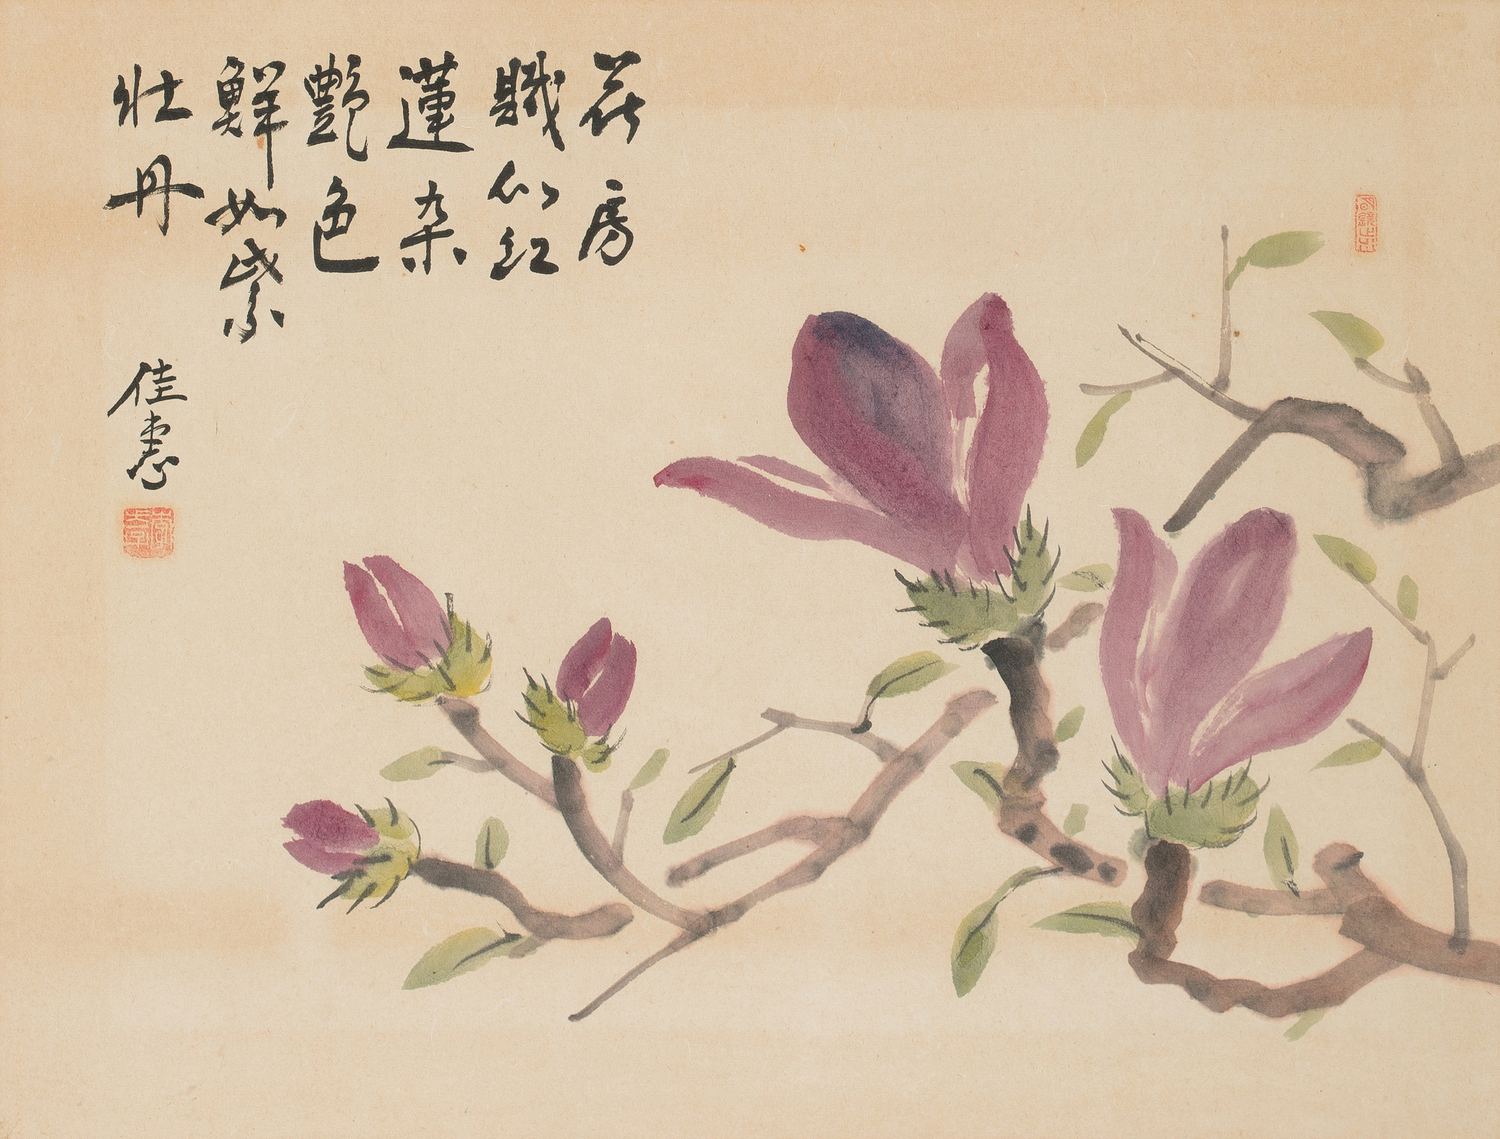 花房
膩似紅
蓮朵
艷色
鮮如紫
牡丹
佳惠